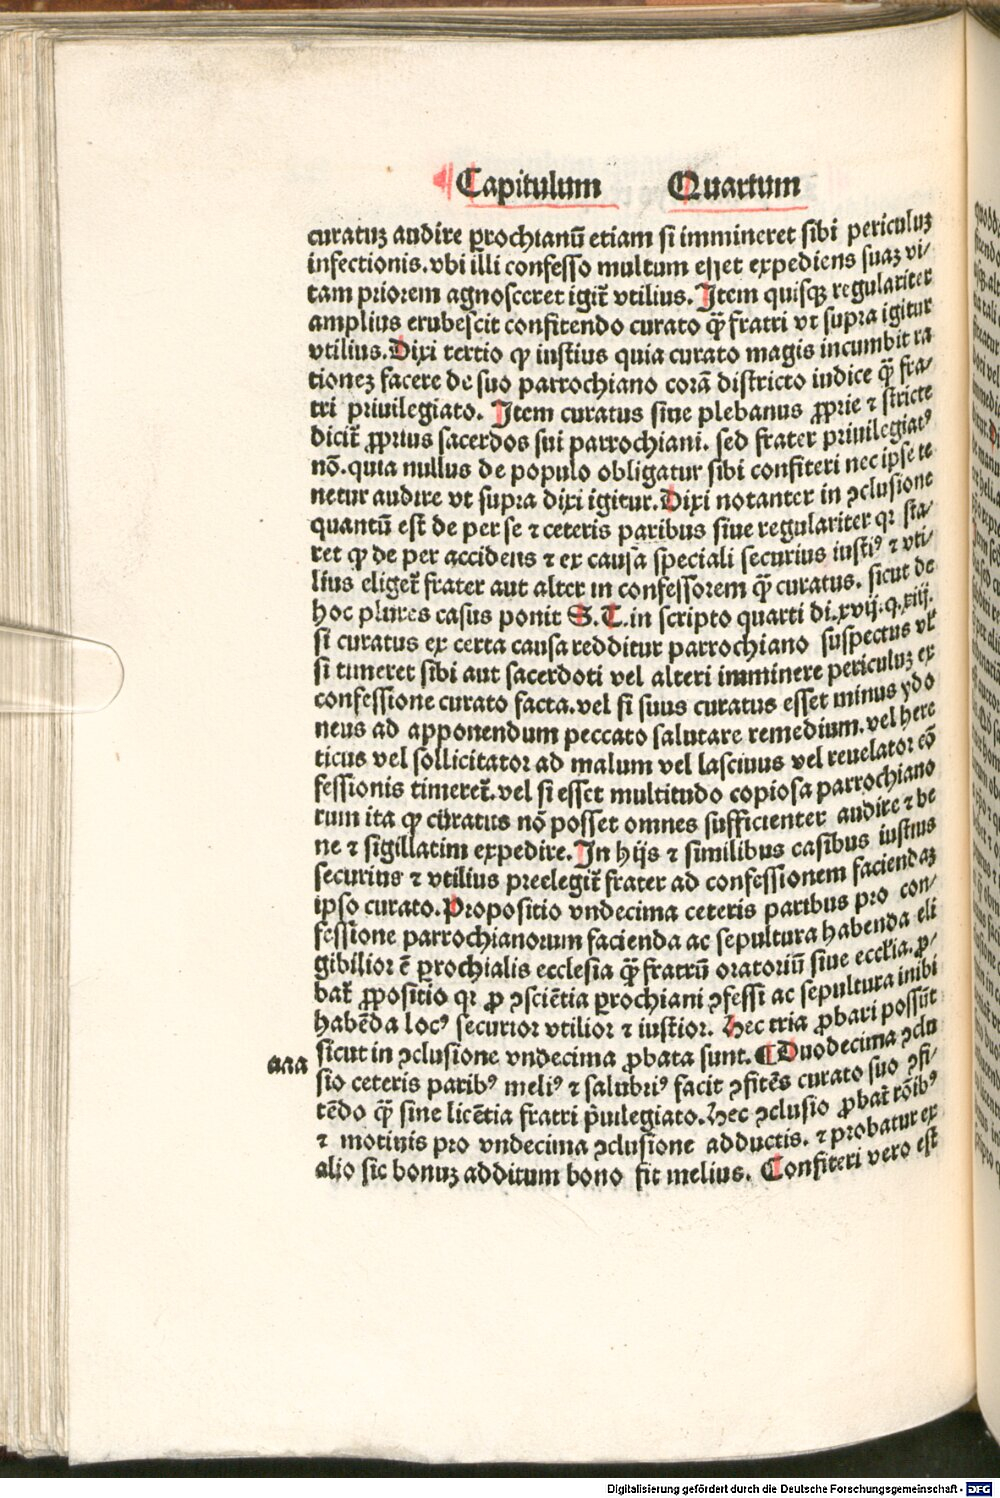 Capitulum Quartum
curatuȝ audire ꝑrochianū etiam si immineret sibi periculuȝ
infectionis.vbi illi confesso multum esset expediens suaȝ vi/
tam priorem agnosceret igit̄ vtilius. Item quisqȝ regulariter
amplius erubescit confitendo curato q̄ȝ fratri vt supra igitur
vtilius.Dixi tertio ꝙ iustius quia curato magis incumbit ra
tioneȝ facere de suo parrochiano corā districto iudice q̄ȝ fra/
tri priuilegiato. Item curatus siue plebanus ꝓprie ⁊ stricte
dicit̄ ꝓprius sacerdos sui parrochiani. sed frater priuilegiatꝰ
nō.quia nullus de populo obligatur sibi confiteri nec ipse te
netur audire vt supra dixi igitur.Dixi notanter in ꝯclusione
quantū est̄ de per se ⁊ ceteris paribus siue regulariter qꝛ sta/
ret ꝙ de per accidens ⁊ ex causa speciali securius iustiꝰ ⁊ vti/
lius eliger̄ frater aut alter in confessorem q̄ȝ curatus. sicut de
hoc plures casus ponit S.T.in scripto quarti di.xvij.q.xiij.
si curatus ex certa causa redditur parrochiano suspectus vl̄
si timeret sibi aut sacerdoti vel alteri imminere periculuȝ ex
confessione curato facta.vel si suus curatus esset minus ydo
neus ad apponendum peccato salutare remedium.vel here
ticus vel sollicitatoꝛ ad malum vel lasciuus vel reuelatoꝛ cō
fessionis timeret̄.vel si esset multitudo copiosa parrochiano
rum ita ꝙ curatus nō posset omnes sufficienter audire ⁊ be
ne ⁊ sigillatim expedire.In hijs ⁊ similibus casibus iustius
securius ⁊ vtilius preelegit̄ frater ad confessionem faciendaȝ
ipso curato.Propositio vndecima ceteris paribus pro con/
fessione parrochianoꝛum facienda ac sepultura habenda eli
gibilioꝛ ē ꝑrochialis ecclesia q̄ȝ fratrū oratoꝛiū siue eccl̄ia.ꝓ/
bat̄ ꝓpositio qꝛ ꝓ ꝯsciētia ꝑrochiani ꝯfessi ac sepultura inibi
habēda locꝰ securioꝛ vtilioꝛ ⁊ iustioꝛ. Hec tria ꝓbari possūt
sicut in ꝯclusione vndecima ꝓbata sunt.¶Duodecima ꝯclu
aaa
sio ceteris paribꝰ meliꝰ ⁊ salubriꝰ facit ꝯfitēs curato suo ꝯfi/
tēdo q̄ȝ sine licētia fratri p̄uilegiato.Hec ꝯclusio ꝓbat̄ rōibꝰ
⁊ motiuis pro vndecima ꝯclusione adductis. ⁊ probatur ex
alio sic bonuȝ additum bono fit melius. Confiteri vero est̄
Digitalisierung gefördert durch die Deutsche Forschungsgemeinschaft - DFG